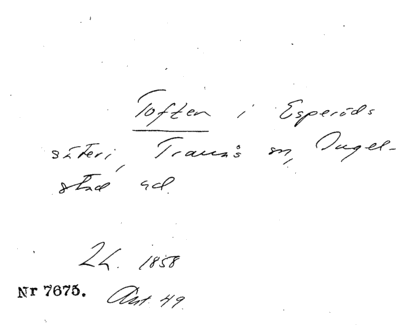 Toften i Esperöds
säteri, Tranås sn, Ingel-
stad hd
LL. 1858
Nr 7675. Ant. 49